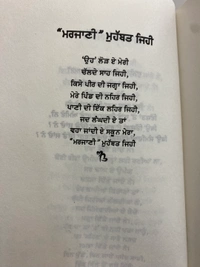 "ਮਰਜਾਣੀ" ਮੁਹੱਬਤ ਜਿਹੀ
'ਉਹ' ਲੋੜ ਏ ਮੇਰੀ
ਚੱਲਦੇ ਸਾਹ ਜਿਹੀ,
ਕਿਸੇ ਪੀਰ ਦੀ ਜਗ੍ਹਾ ਜਿਹੀ,
ਮੇਰੇ ਪਿੰਡ ਦੀ ਨਹਿਰ ਜਿਹੀ,
ਪਾਣੀ ਦੀ ਇੱਕ ਲਹਿਰ ਜਿਹੀ,
ਜਦ ਲੰਘਦੀ ਏ ਤਾਂ
ਵਹਾ ਜਾਂਦੀ ਏ ਸਕੂਨ ਮੇਰਾ,
"ਮਰਜਾਣੀ" ਮੁਹੱਬਤ ਜਿਹੀ